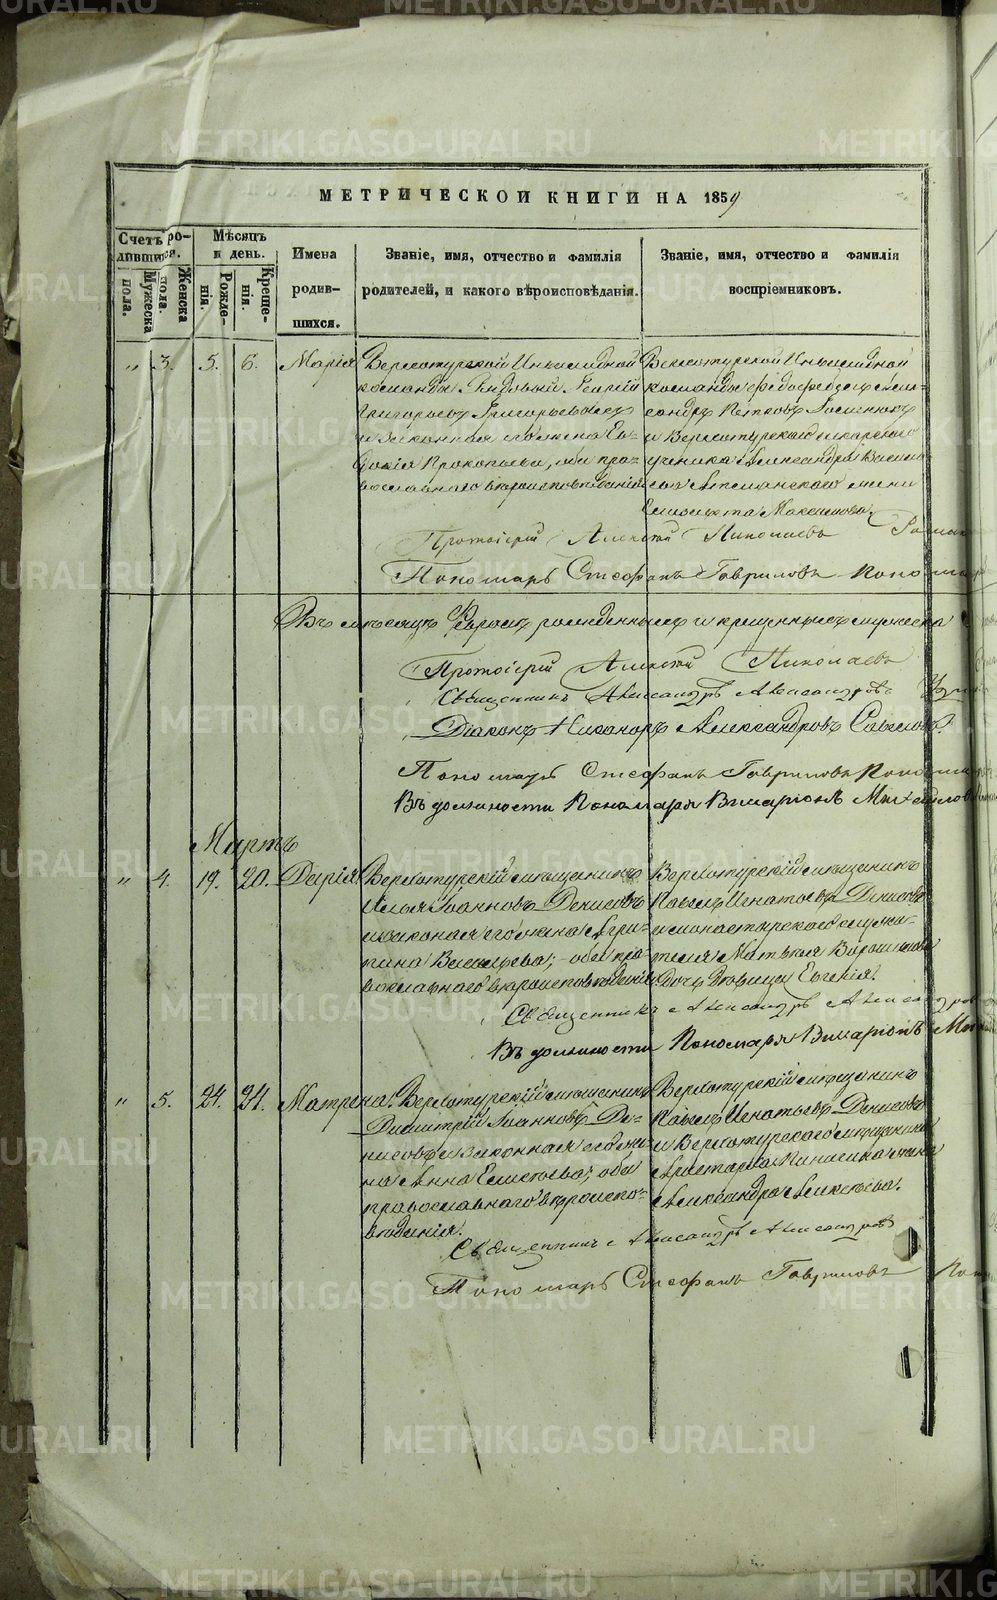 МЕТРИЧЕСКОЙ КНИГИ НА 1859
Счетъ ро-
дившихся.
Мужеска пола.
Женска пола.
Мѣсяцъ
и день.
Рожде-
нія.
Креще-
нія.
Имена
родив-
шихся.
Званіе, имя, отчество и фамилія
родителей, и какого вѣроисповѣданія.
Званіе, имя, отчество и фамилія
воспріемниковъ.
„ 3. 5. 6. Марія
Верхотурской Инвалидной
команды Рядовый Георгій
Григорьевъ
и законная его жена Ев-
докія Прокопьева, оба пра-
вославнаго вѣроисповѣданія
Верхотурской Инвалидной
команды
и Верхотурскаго лекарскаго
ученика Александра
жена
Максимова
Протоіерей Алексій Николаевъ
Пономарь Стефанъ Гавриловъ
Въ мѣсяцѣ Февралѣ рожденныхъ и крещенныхъ мужеска
Протоіерей Алексій Николаевъ
Священникъ Александръ Александровъ
Діаконъ Никаноръ Александровъ
Пономарь Стефанъ Гавриловъ
Въ должности Пономаря Иларіонъ
Мартъ
„ 4. 19. 20. Дарія
Верхотурскій мѣщанинъ
Илья Іоанновъ Денисовъ
и законная его жена Агри-
пина Васильева; оба пра-
вославнаго вѣроисповѣданія
Верхотурскій мѣщанинъ
Павелъ Игнатьевъ Денисовъ
и монастырскаго служи-
теля Матвея
Дочь Дѣвица Евгенія.
Священникъ Александръ Александровъ
Въ должности Пономаря Иларіонъ
„ 5. 24. 24. Матрена.
Верхотурскій мѣщанинъ
Димитрій Іоанновъ Де-
нисовъ и законная его же-
на Анна Елисѣева; оба
православнаго вѣроиспо-
вѣданія.
Верхотурскій мѣщанинъ
Павелъ Игнатьевъ Денисовъ
и Верхотурскаго мѣщанина
Аристарха жена
Александра Алексѣева.
Священникъ Александръ Александровъ
Пономарь Стефанъ Гавриловъ
METRIKI.GASO-URAL.RU